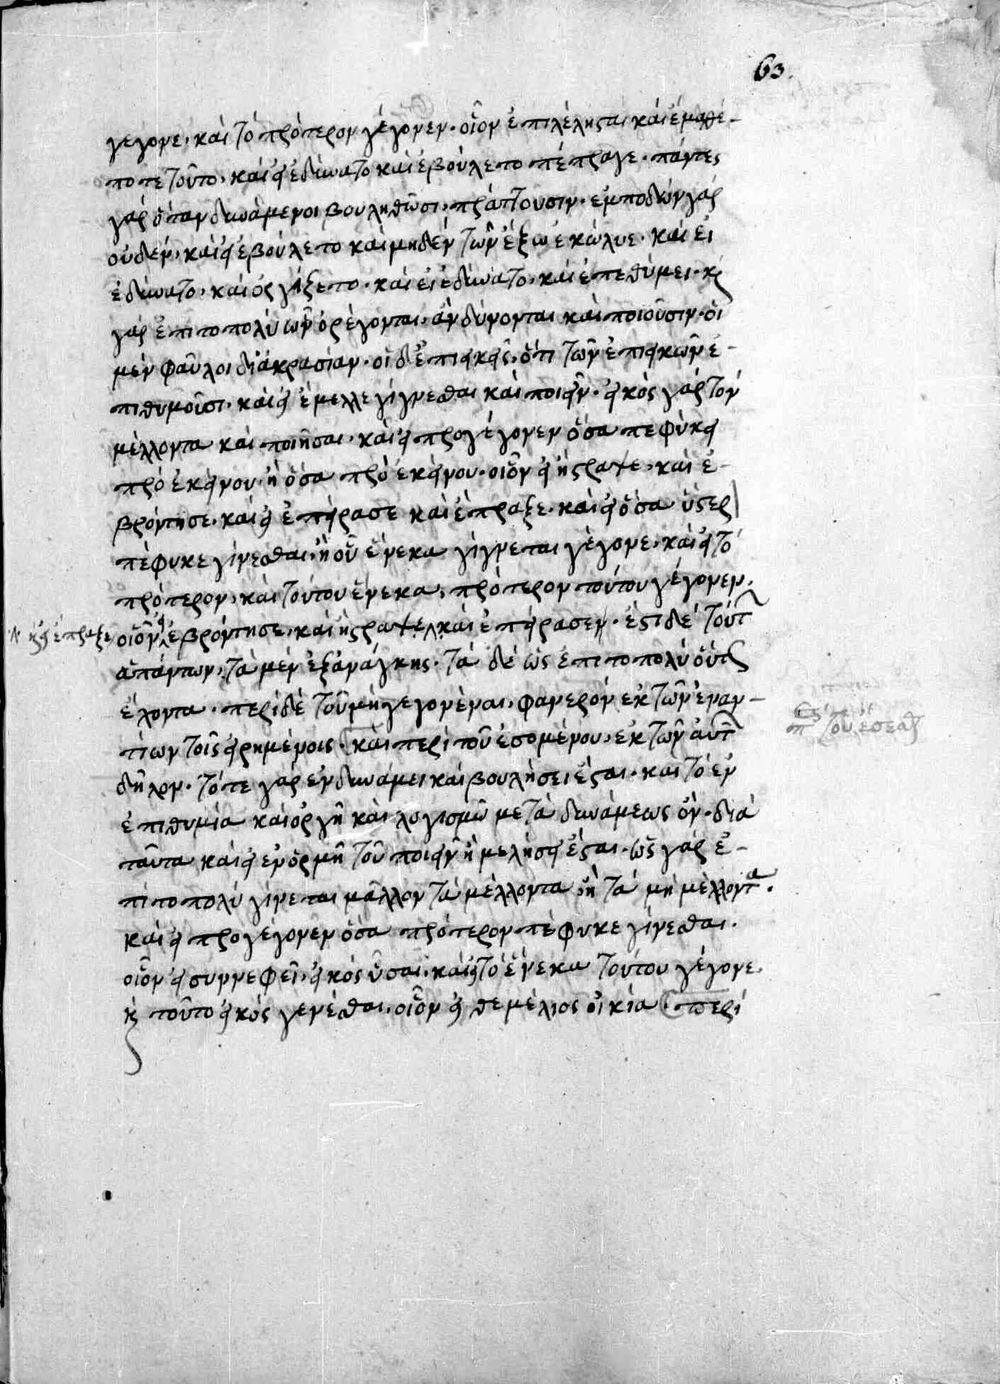 63.
γέγονε, καὶ τὸ πρότερον γέγονεν· οἷον ἐπιλέλησαι καὶ ἔμαθέ-
ποτε τοῦτο, καὶ εἰ ἐδύνατο καὶ ἐβούλετο πέπραγε· πάντες
γὰρ ὅταν δυνάμενοι βουληθῶσι, πράττουσιν· ἐμποδὼν γὰρ
οὐδέν, καὶ εἰ ἐβούλετο καὶ μηδὲν τῶν ἔξω ἐκώλυε· καὶ εἰ
ἐδύνατο, καὶ ὀργίζετο· καὶ εἰ ἐδύνατο, καὶ ἐπεθύμει· κ̀
γὰρ ἐπὶ τὸ πολὺ ὧν ὀρέγονται, ἂν δύνονται καὶ ποιοῦσιν· οἱ
μὲν φαῦλοι δι' ἀκρασίαν· οἱ δ' ἐπιεικεῖς, ὅτι τῶν ἐπιεικῶν ἐ-
πιθυμοῦσι· καὶ εἰ ἔμελλε γίγνεσθαι καὶ ποιεῖν· εἰκὸς γὰρ τὸν
μέλλοντα καὶ ποιῆσαι, καὶ εἰ προγέγονεν ὅσα πεφύκει
πρὸ ἐκείνου, ἢ ὅσα πρὸ ἐκείνου· οἷον εἰ ἤστραψε, καὶ ἐ-
βρόντησε, καὶ εἰ ἐπείρασε καὶ ἔπραξε· καὶ εἰ ὅσα ὕστερ
πέφυκε γίνεσθαι, ἢ οὗ ἕνεκα γίγνεται γέγονε, καὶ εἰ τὸ
πρότερον, καὶ τούτου ἕνεκα, πρότερον τούτου γέγονεν,
κ̀ εἰ ἔπραξε
οἷον εἰ ἐβρόντησε, καὶ ἤστραψε, καὶ ἐπείρασεν· ἔστι δὲ τούτ
ἁπάντων, τὰ μὲν ἐξ ἀνάγκης· τὰ δὲ ὡς ἐπὶ τὸ πολὺ οὕτως
ἔχοντα· περὶ δὲ τοῦ μὴ γεγονέναι, φανερὸν ἐκ τῶν ἐναν-
τίων τοῖς εἰρημένοις· καὶ περὶ τοῦ ἐσομένου, ἐκ τῶν αὐτ
δῆλον· τό τε γὰρ ἐν δυνάμει καὶ βουλήσει ἔσται· καὶ τὸ ἐν
ἐπιθυμία καὶ ὀργῆ καὶ λογισμῶ μετὰ δυνάμεως ὄν· διὰ
ταῦτα καὶ εἰ ἐν ὁρμῆ τοῦ ποιεῖν ἢ μελήσει ἔσται· ὡς γὰρ ἐ-
πὶ τὸ πολὺ γίνεται μᾶλλον τὰ μέλλοντα ἢ τὰ μὴ μέλλοντα.
καὶ εἰ προγέγονεν ὅσα πρότερον πέφυκε γίνεσθαι.
οἷον εἰ συννεφεῖ, εἰκὸς ὗσαι, καὶ εἰ τὸ ἕνεκα τούτου γέγονε,
κ̀ τοῦτο εἰκὸς γενέσθαι, οἷον εἰ θεμέλιος οἰκία· περὶ